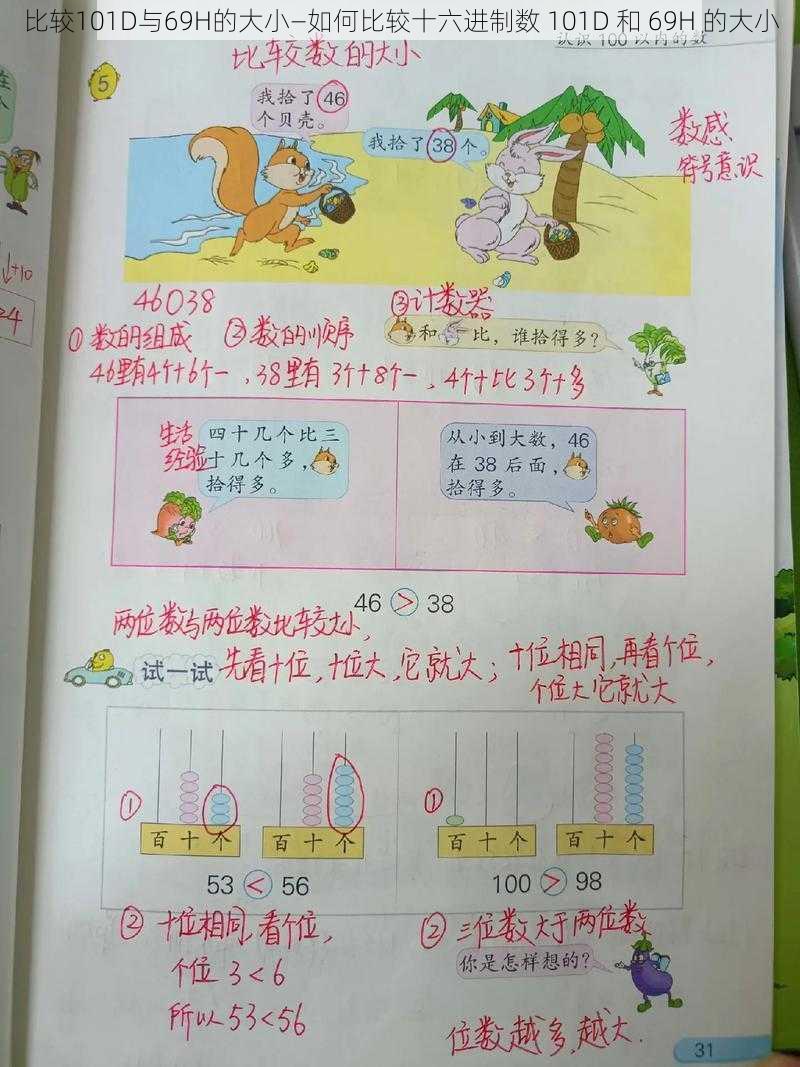 比较101D与69H的大小—如何比较十六进制数 101D 和 69H 的大小
认识 100 以内的数
比较数的大小
5
我拾了46
个贝壳。
我拾了38个。
数感
符号意识
↓+10
46○38
③计数器
①数的组成 ②数的顺序
和 比，谁拾得多？
46里有4个十6个一，38里有3个十8个一，4个十比3个十多
生活
经验
四十几个比三
十几个多，
拾得多。
从小到大数，46
在 38 后面，
拾得多。
46 > 38
两位数与两位数比较大小，
试一试
先看十位，十位大，它就大；十位相同，再看个位，
个位大它就大
① ①
百 十 个 百 十 个 百 十 个 百 十 个
53 < 56 100 > 98
②十位相同，看个位，
个位 3<6
所以 53<56
②三位数大于两位数
你是怎样想的？
位数越多，越大.
31